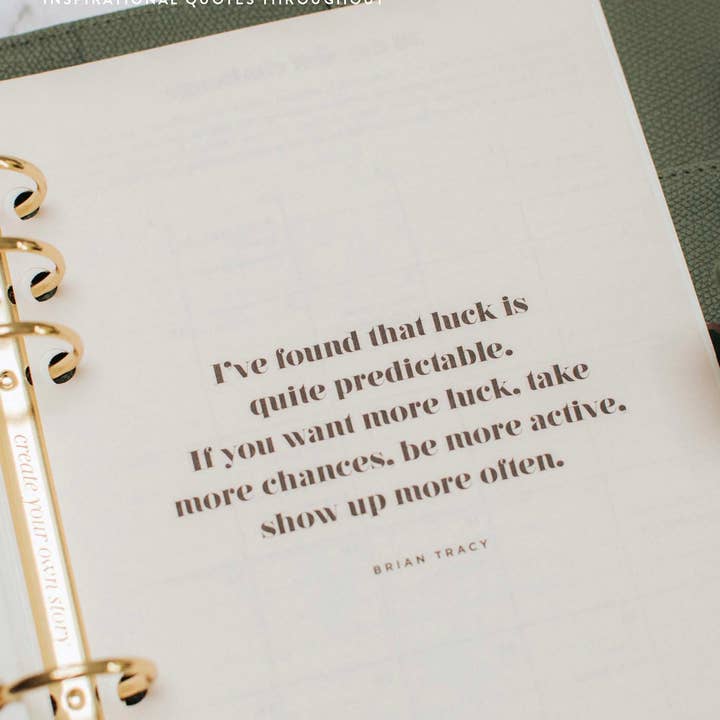 INSPIRATIONAL QUOTES THROUGHOUT
I've found that luck is
quite predictable.
If you want more luck, take
more chances, be more active,
show up more often.
BRIAN TRACY
create your own story